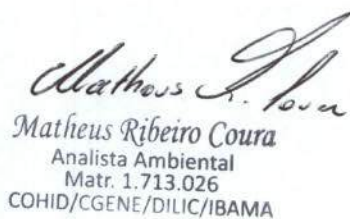 Matheus R. Coura
Matheus Ribeiro Coura
Analista Ambiental
Matr. 1.713.026
COHID/CGENE/DILIC/IBAMA